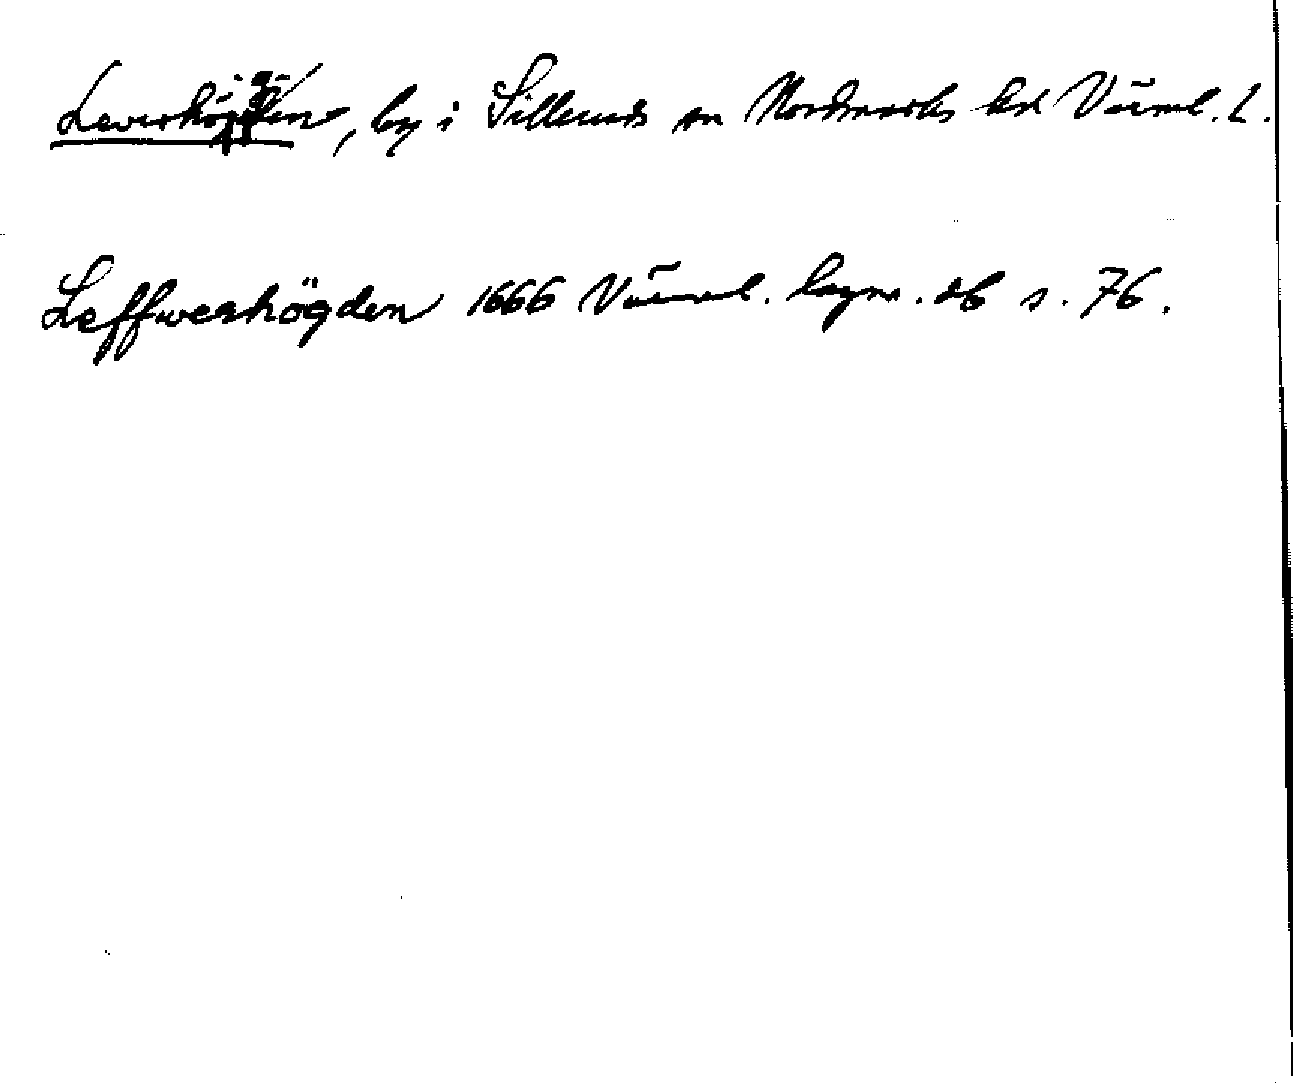 Leverhögden, by i Silleruds sn Nordmarks hd Värml. L.
Leffwerhögden 1666 Värml. lagm. db s. 76.